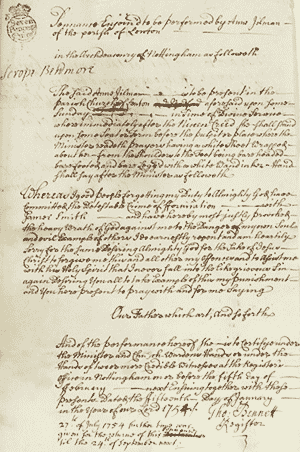 Pennance Enjoyned to be performed by Anne Jelman
of the parish of Lenton
in the Archdeaconry of Nottingham as followeth
Scroop Beltmore
The said Anne Jelman is to be present in the
parish Church of Lenton aforesaid upon some
Sunday in time of Divine Service
where immediately after the Nicene Creed she shall stand
upon some Seat or Form before the pulpit or place where the
Minister readeth prayers having a white Sheet wrapped
about her from the Shoulders to the Feet being bare headed
barefooted and bare legged with a white Wand in her Hand
shall say after the Minister as followeth
Whereas I good People forgetting my Duty to Almighty God have
Committed the Detestable Crime of Fornication with
James Smith and have hereby most justly provoked
the heavy Wrath of God against me to the danger of my own Soul
and evil Example of others I do earnestly repent and am heartily
sorry for the same desiring Almighty God for the sake of Jesus
Christ to forgive me this and all other my offences and to assist me
with his Holy Spirit that I never fall into the like grievous Sin
again Desiring you all to take example of this my Punishment
and you here present to pray with and for me saying
Our Father which art, and so forth
And of the performance hereof she is to certify under
the Minister and Church Wardens Hands or under the
Hands of two more Credible Witnesses at the Register's
Office in Nottingham on or before the fifth Day of
February next coming together with these
presents Dated the fifteenth Day of January
in the Year of our Lord 1754
Register
27th of July 1754 further time was
given for the performance of this
til the 24th of September next